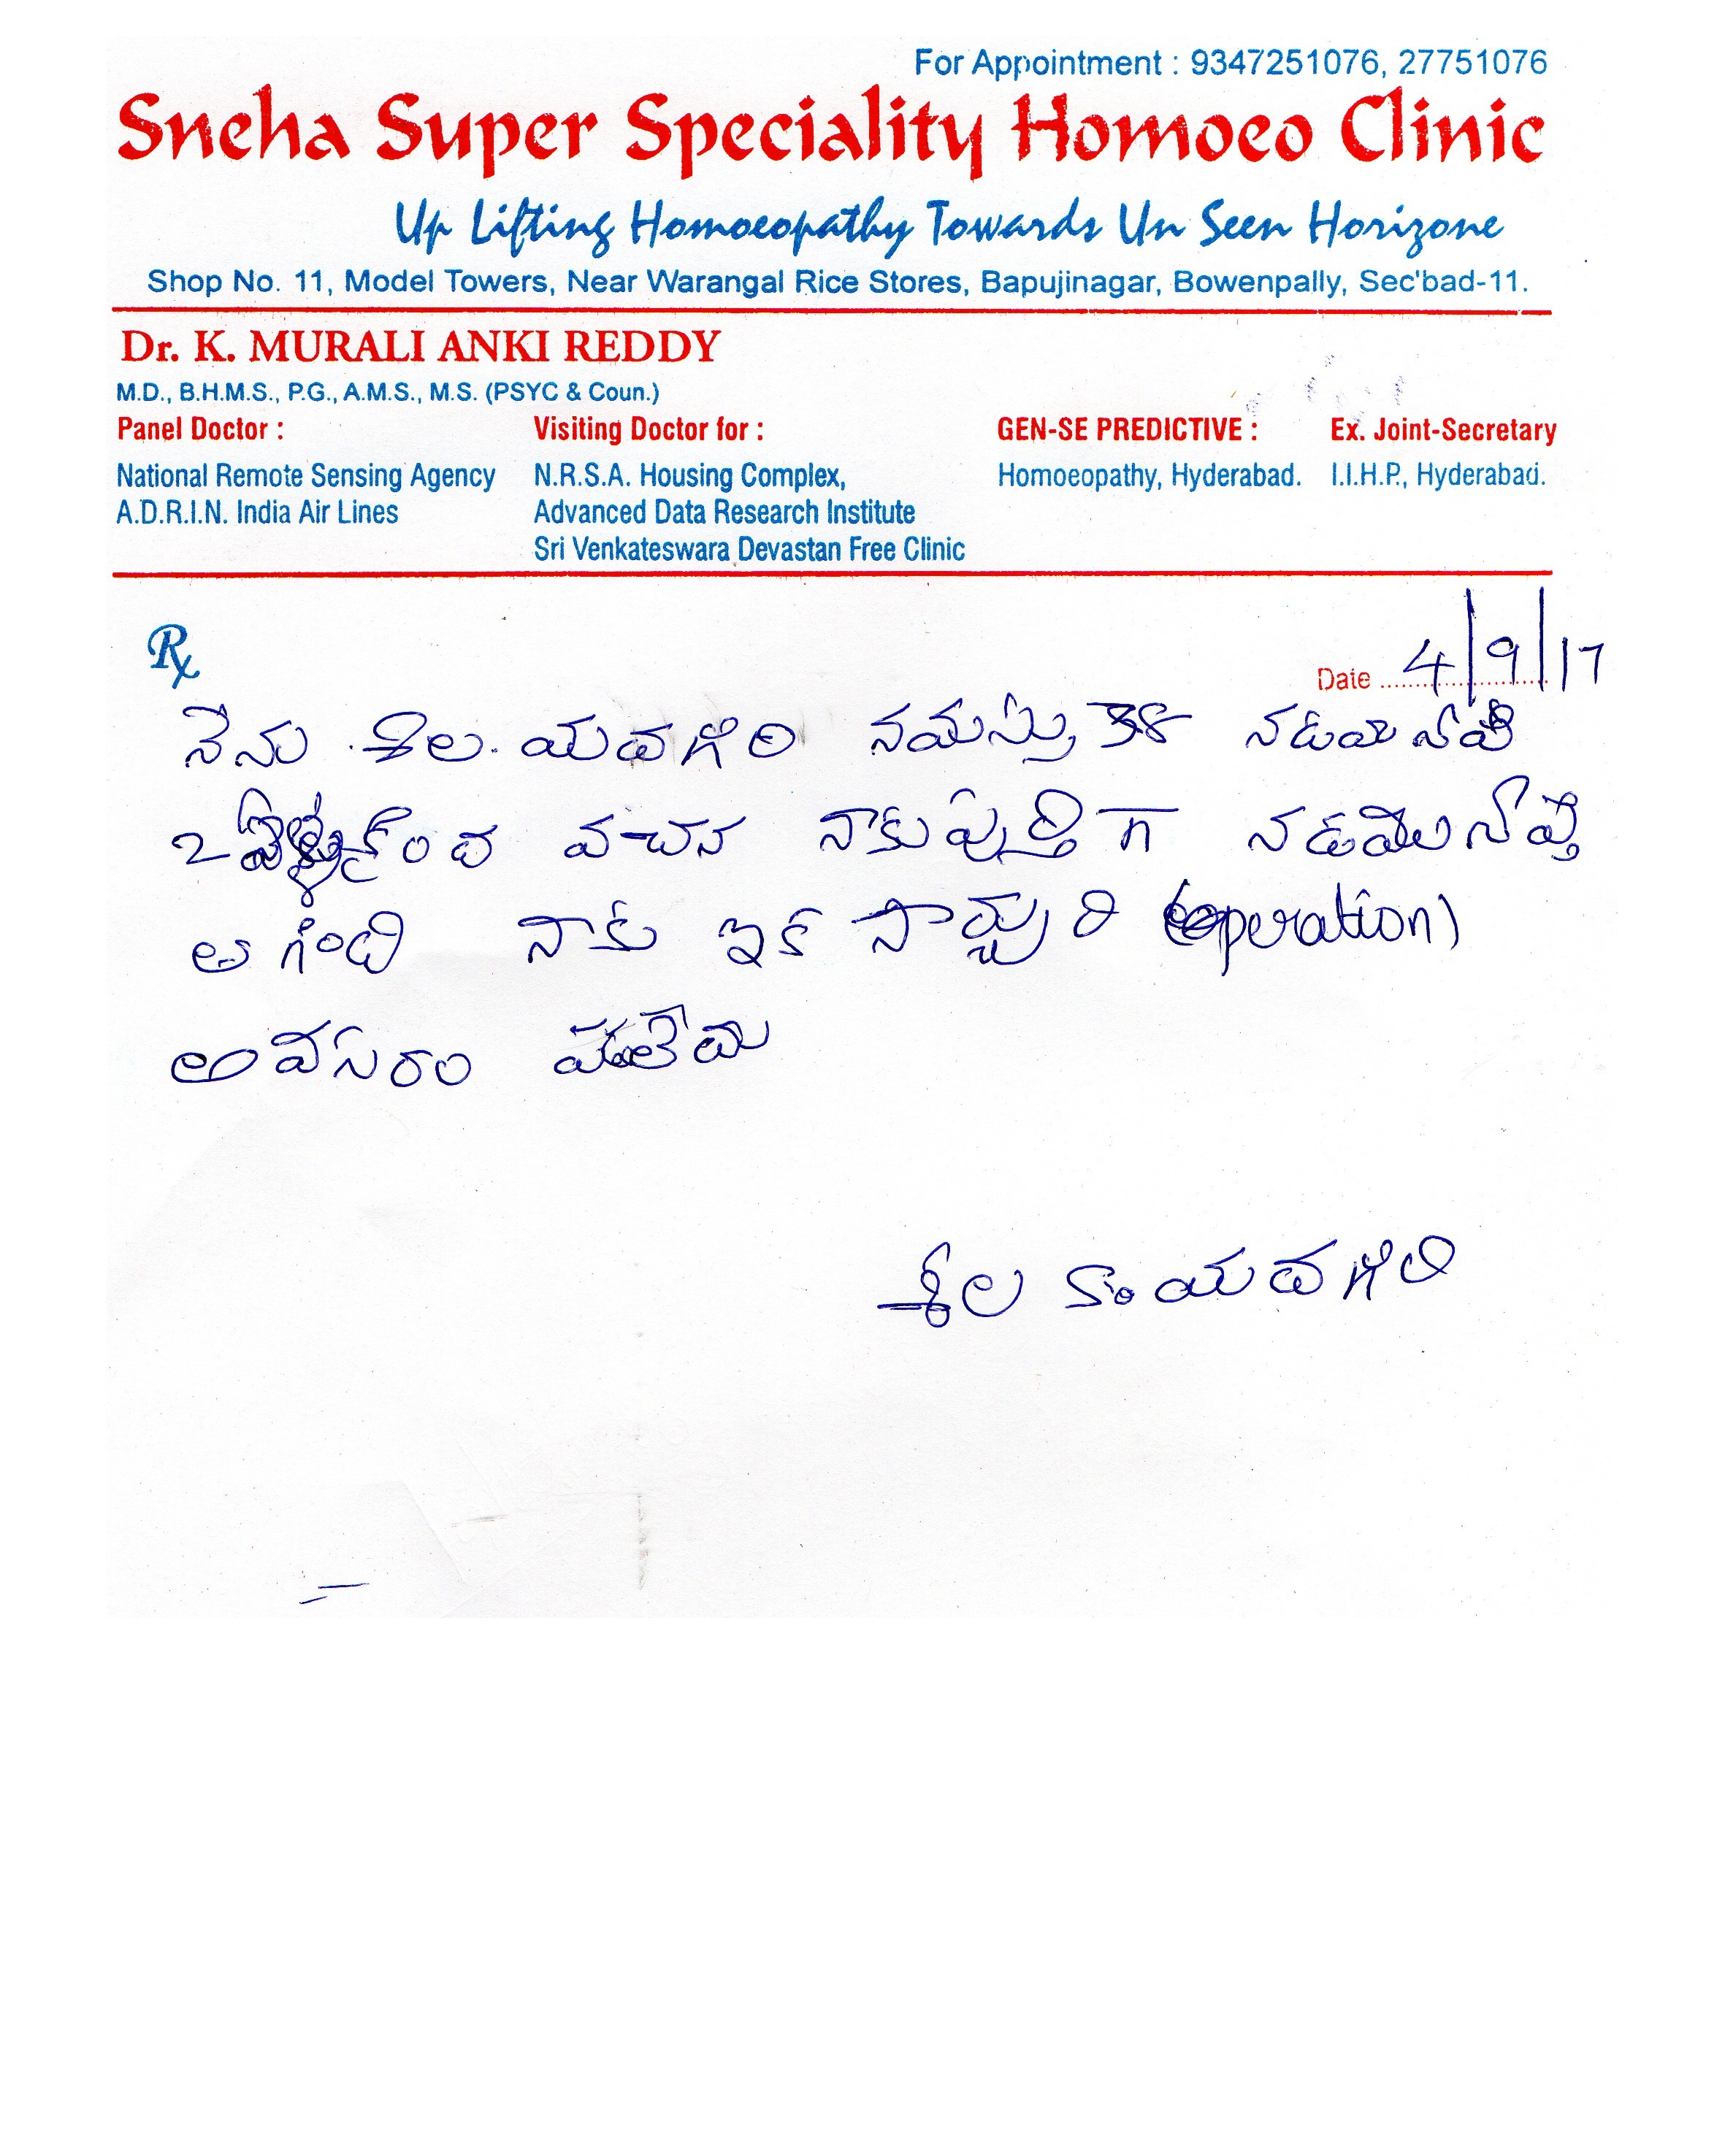 For Appointment : 9347251076, 27751076
Sneha Super Speciality Homoeo Clinic
Up Lifting Homoeopathy Towards Un Seen Horizone
Shop No. 11, Model Towers, Near Warangal Rice Stores, Bapujinagar, Bowenpally, Sec'bad-11.
Dr. K. MURALI ANKI REDDY
M.D., B.H.M.S., P.G., A.M.S., M.S. (PSYC & Coun.)
Panel Doctor : Visiting Doctor for : GEN-SE PREDICTIVE : Ex. Joint-Secretary
National Remote Sensing Agency N.R.S.A. Housing Complex, Homoeopathy, Hyderabad. I.I.H.P., Hyderabad.
A.D.R.I.N. India Air Lines Advanced Data Research Institute
Sri Venkateswara Devastan Free Clinic
Rx
Date 4/9/17
నేను శిల యదగిరి 38
2 నాకు పుర్తి గ
ఆగింది నాకు ఇక (operation)
అవసరం
శీల యదగిరి